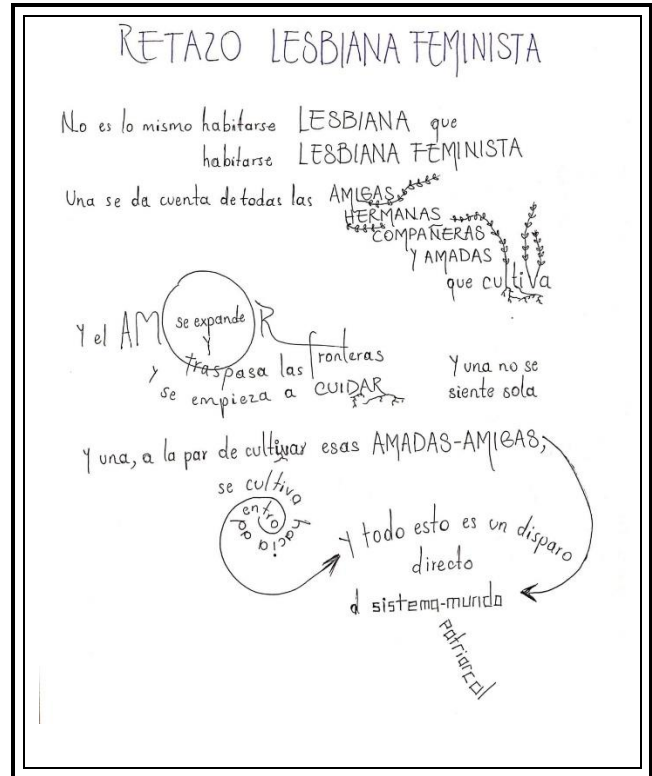 RETAZO LESBIANA FEMINISTA
No es lo mismo habitarse LESBIANA que
habitarse LESBIANA FEMINISTA
Una se da cuenta de todas las AMIGAS
HERMANAS
COMPAÑERAS
Y AMADAS
que cultiva
Y el AMOR
se expande
y
traspasa las fronteras
y se empieza a CUIDAR
Y una no se
siente sola
Y una, a la par de cultivar esas AMADAS-AMIGAS,
se cultiva
hacia adentro
Y todo esto es un disparo
directo
al sistema-mundo
patriarcal